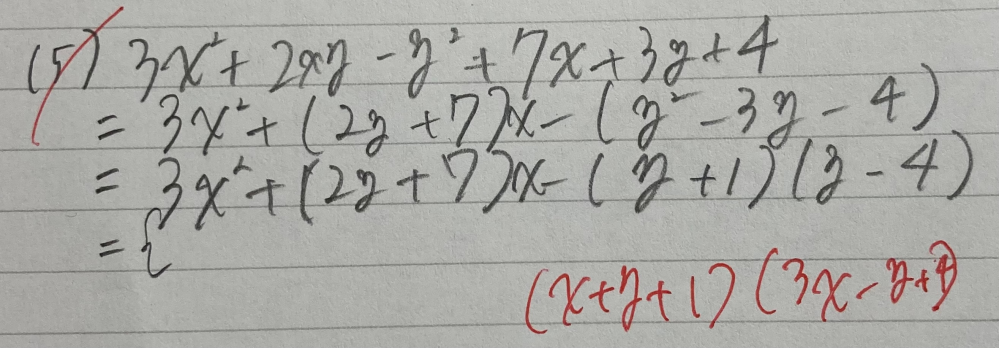 (5) 3x² + 2xy - y² + 7x + 3y + 4
= 3x² + (2y + 7)x - (y² - 3y - 4)
= 3x² + (2y + 7)x - (y + 1)(y - 4)
= {
(x + y + 1)(3x - y + 4)